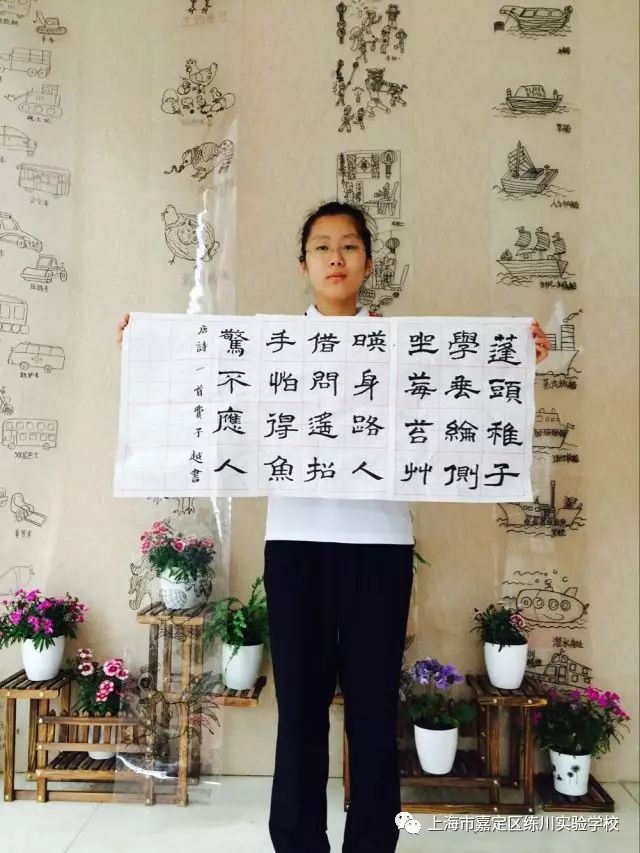 蓬頭稚子
學垂綸側
坐莓苔艸
暎身路人
借問遙招
手怕得魚
驚不應人
唐詩一首費子越書
潜水艇
双层巴士
上海市嘉定区练川实验学校